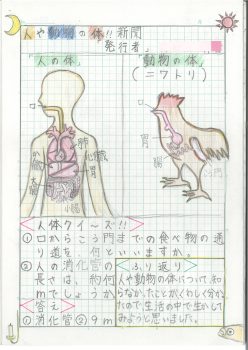 人や動物の体!!新聞
発行者
「人の体」
「動物の体」
(ニワトリ)
口
口
肺
心臓
胃
胃
小腸
<人体クイ〜ズ!!>
①口からこう門までの食べ物の通
り道を何といいますか。
②人の消化管の
長さは、約何
mでしょうか
答え。
①消化管②9m
<ふり返り>
人や動物の体について、知
らなかったことがくわしく分かっ
たので生活の中で生かして
みようと思いました。